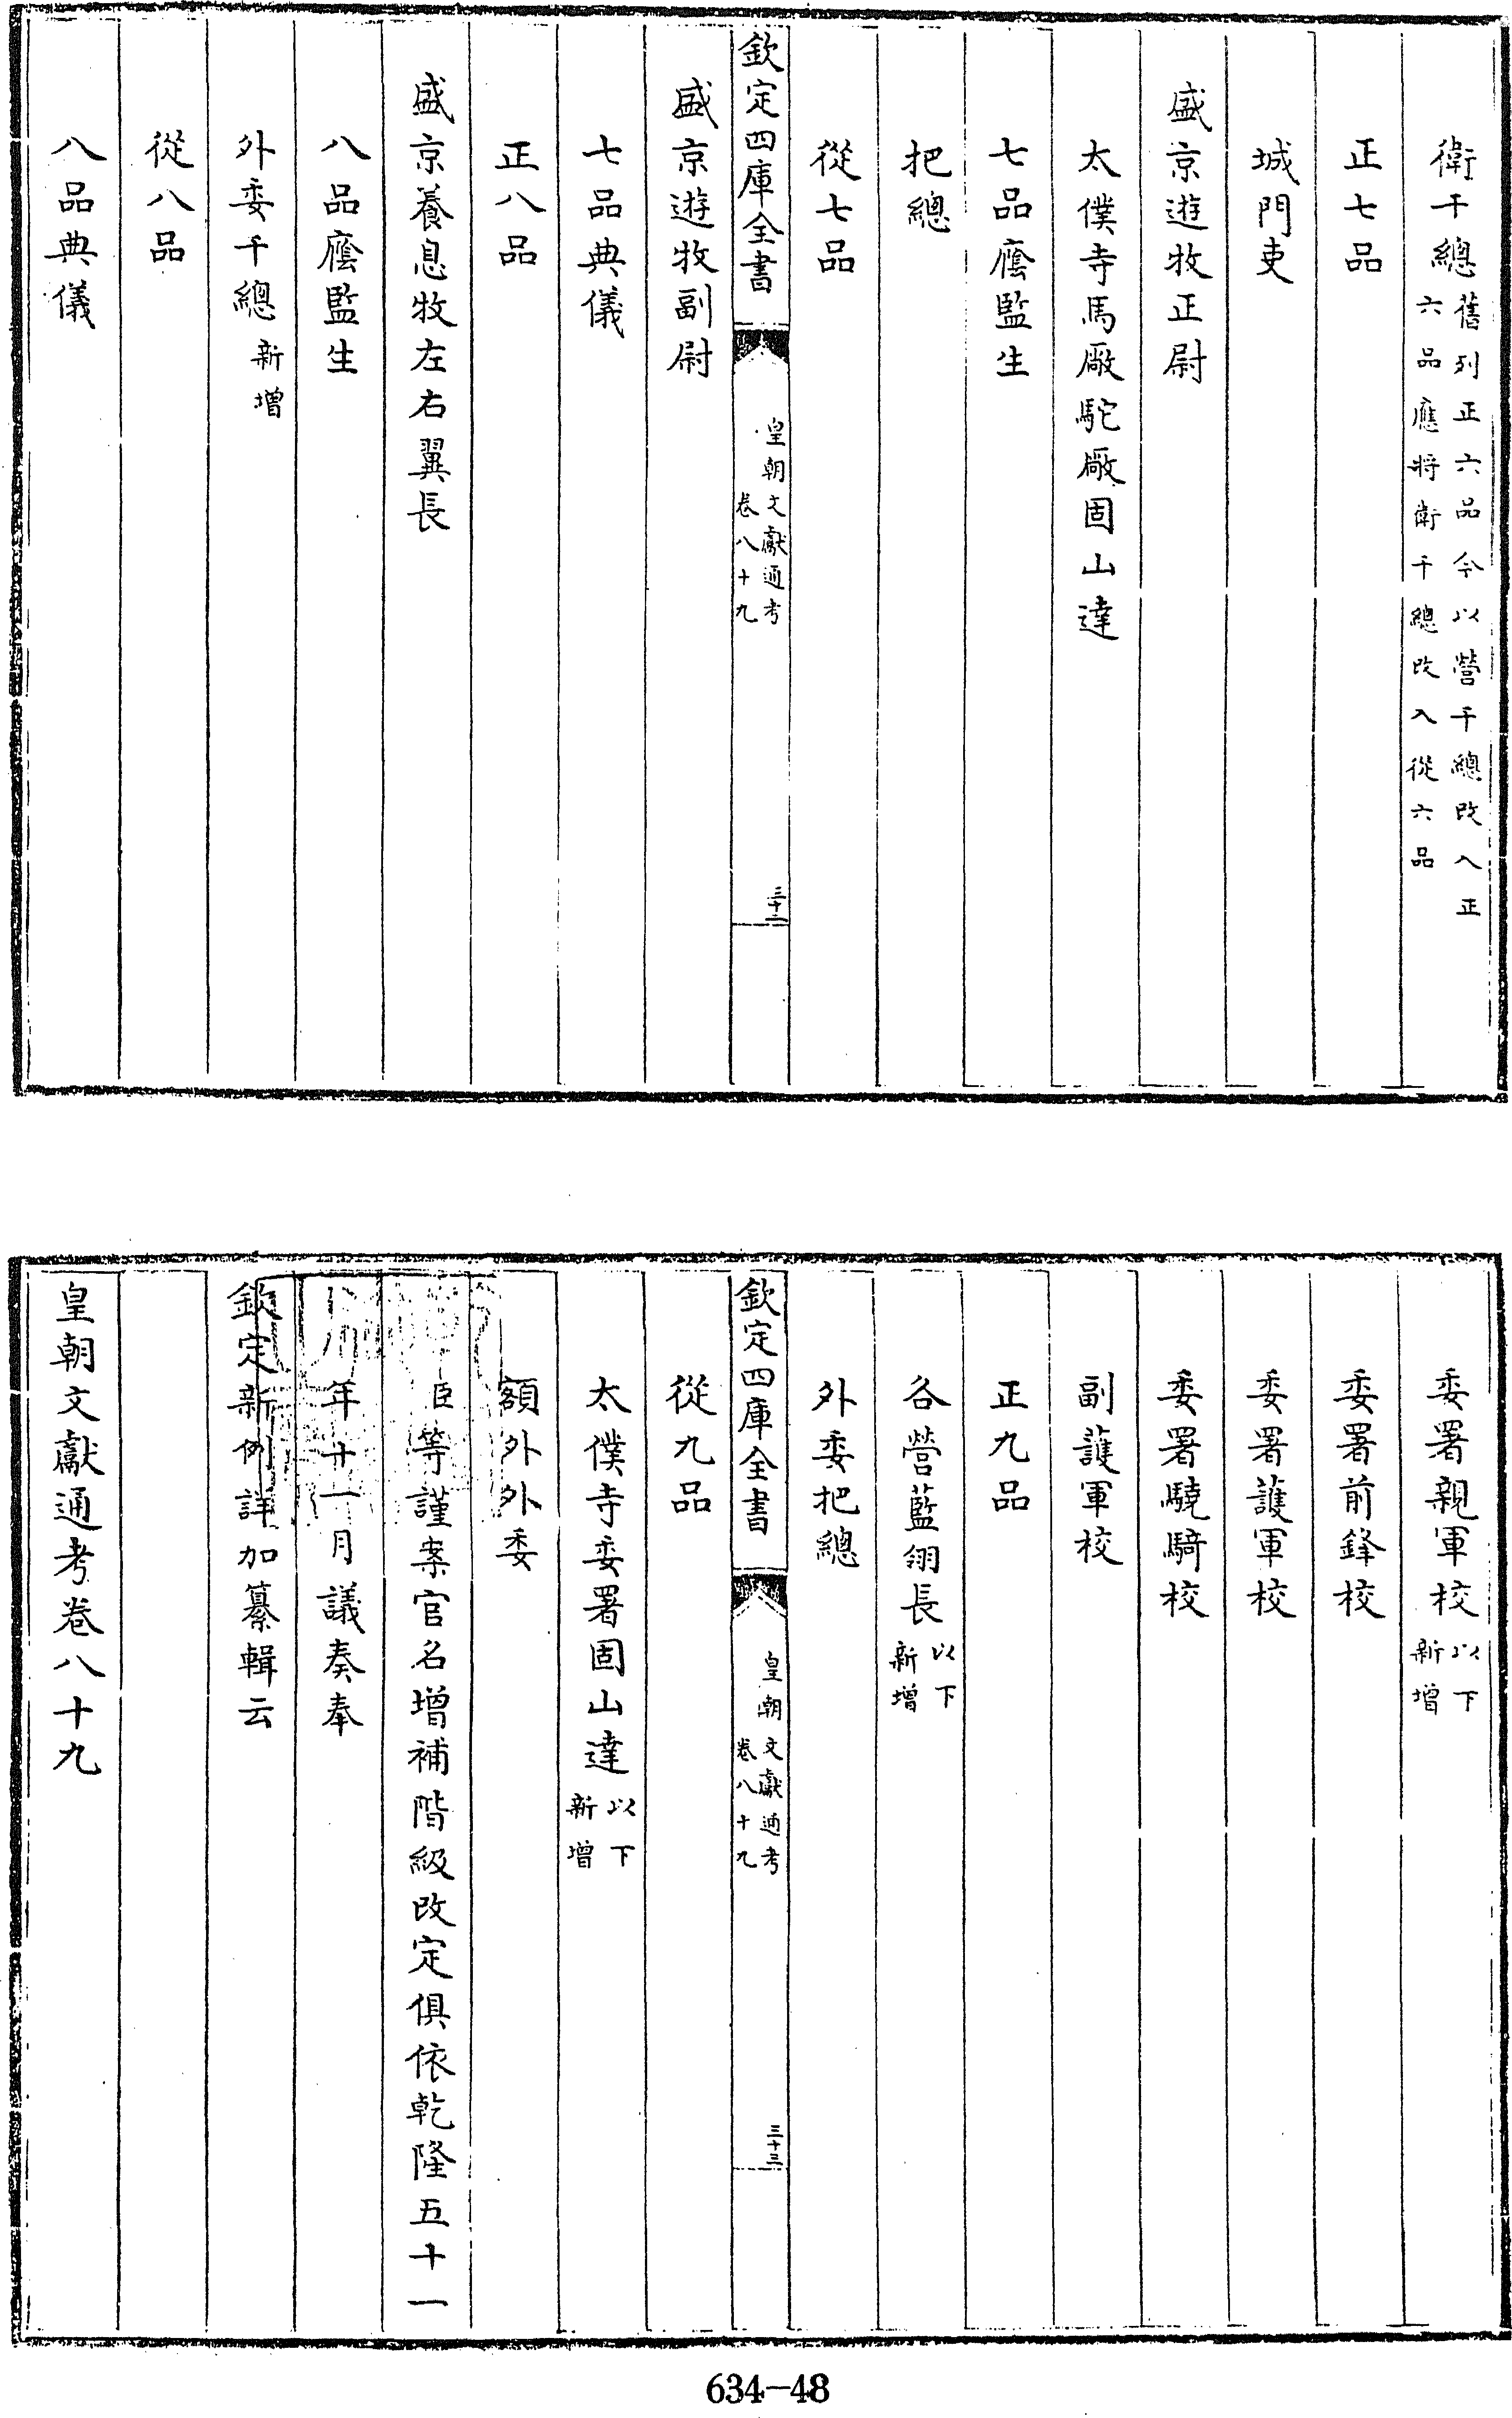 衛千總舊列正六品今以營千總改入正六品應將衛千總改入從六品
正七品
城門吏
盛京遊牧正尉
太僕寺馬廠駝廠固山達
七品廕監生
把總
從七品
欽定四庫全書
皇朝文獻通考
卷八十九
三十二
盛京遊牧副尉
七品典儀
正八品
盛京養息牧左右翼長
八品廕監生
外委千總新增
從八品
八品典儀
委署親軍校以下新增
委署前鋒校
委署護軍校
委署驍騎校
副護軍校
正九品
各營藍翎長以下新增
外委把總
欽定四庫全書
皇朝文獻通考
卷八十九
三十三
從九品
太僕寺委署固山達以下新增
額外外委
臣等謹案官名增補階級改定俱依乾隆五十一
年十一月議奏奉
欽定新例詳加纂輯云
皇朝文獻通考卷八十九
634-48